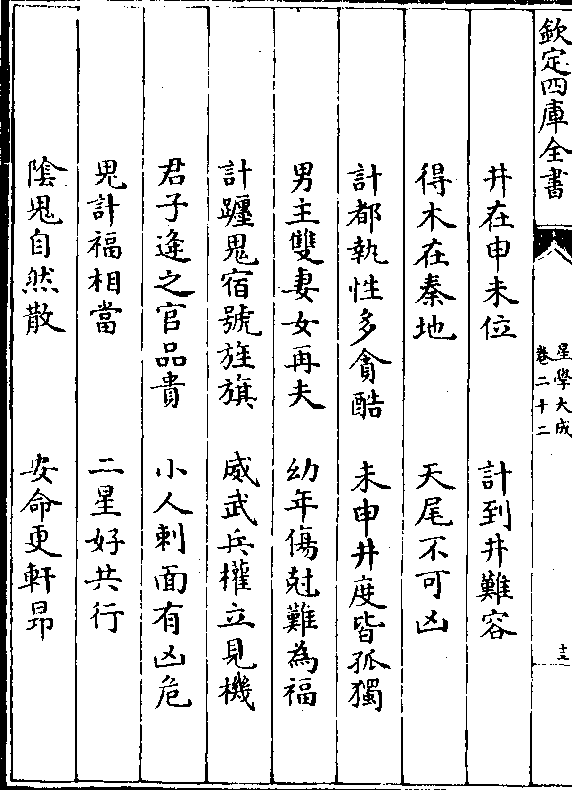 欽定四庫全書
星學大成
卷二十二
十三
井在申未位　計到井難容
得木在秦地　天尾不可凶
計都執性多貪酷　未申井度皆孤獨
男主雙妻女再夫　幼年傷尅難為福
計躔鬼宿號旌旗　威武兵權立見機
君子逢之官品貴　小人刺面有凶危
鬼計福相當　二星好共行
陰鬼自然散　安命更軒昂